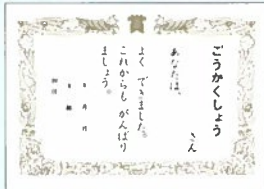 ごうかくしょう
さん
あなたは、
よく できました。
これからも がんばり
ましょう。
月 日